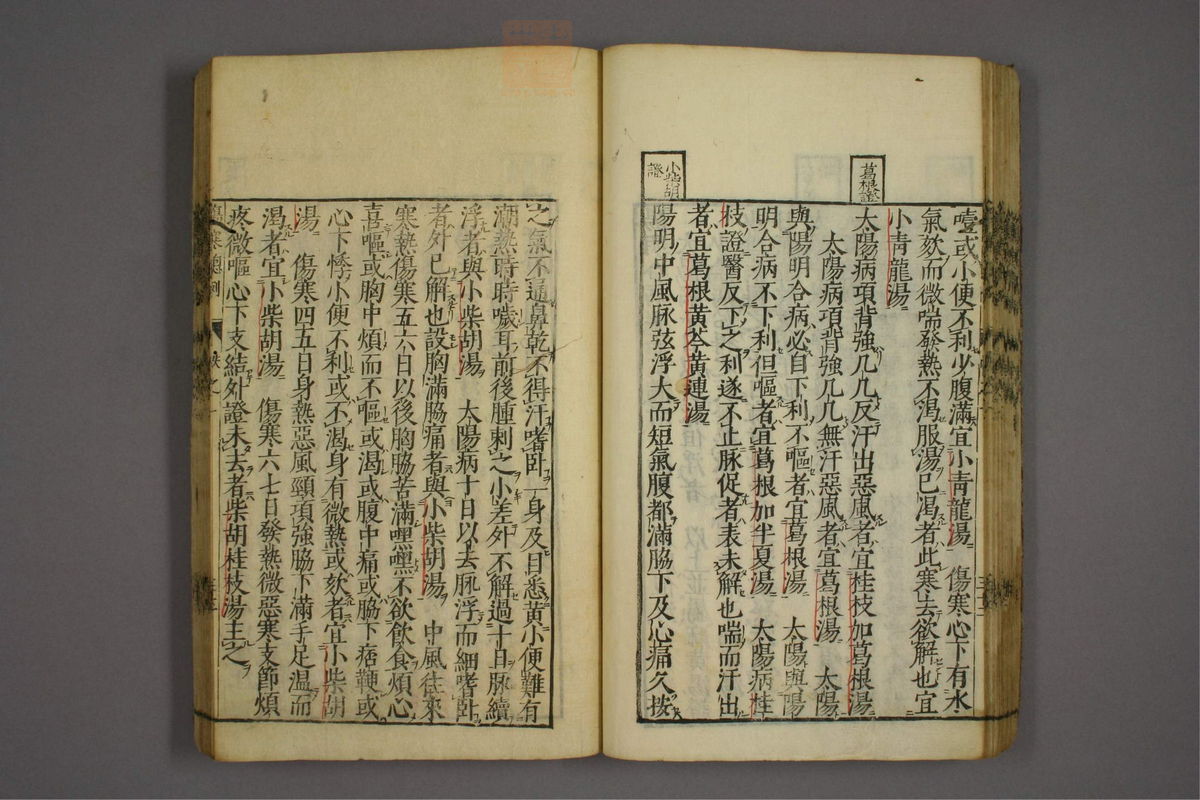 噎或小便不利少腹滿宜小青龍湯　傷寒心下有水
氣欬而微喘發熱不渴服湯已渴者此寒去欲解也宜
小青龍湯
葛根證
太陽病項背強几几反汗出惡風者宜桂枝加葛根湯
太陽病項背強几几無汗惡風者宜葛根湯　太陽
與陽明合病必自下利不嘔者宜葛根湯　太陽與陽
明合病不下利但嘔者宜葛根加半夏湯　太陽病桂
枝證醫反下之利遂不止脉促者表未解也喘而汗出
者宜葛根黃芩黃連湯
小柴胡證
陽明中風脉弦浮大而短氣腹都滿脇下及心痛久按
之氣不通鼻乾不得汗嗜卧一身及目悉黃小便難有
潮熱時時噦耳前後腫刺之小差外不解過十日脉續
浮者與小柴胡湯　太陽病十日以去脉浮而細嗜卧
者外已解也設胸滿脇痛者與小柴胡湯　中風往來
寒熱傷寒五六日以後胸脇苦滿嘿嘿不欲飲食煩心
喜嘔或胸中煩而不嘔或渴或腹中痛或脇下痞鞕或
心下悸小便不利或不渴身有微熱或欬者宜小柴胡
湯　傷寒四五日身熱惡風頸項強脇下滿手足温而
渴者宜小柴胡湯　傷寒六七日發熱微惡寒支節煩
疼微嘔心下支結外證未去者柴胡桂枝湯主之